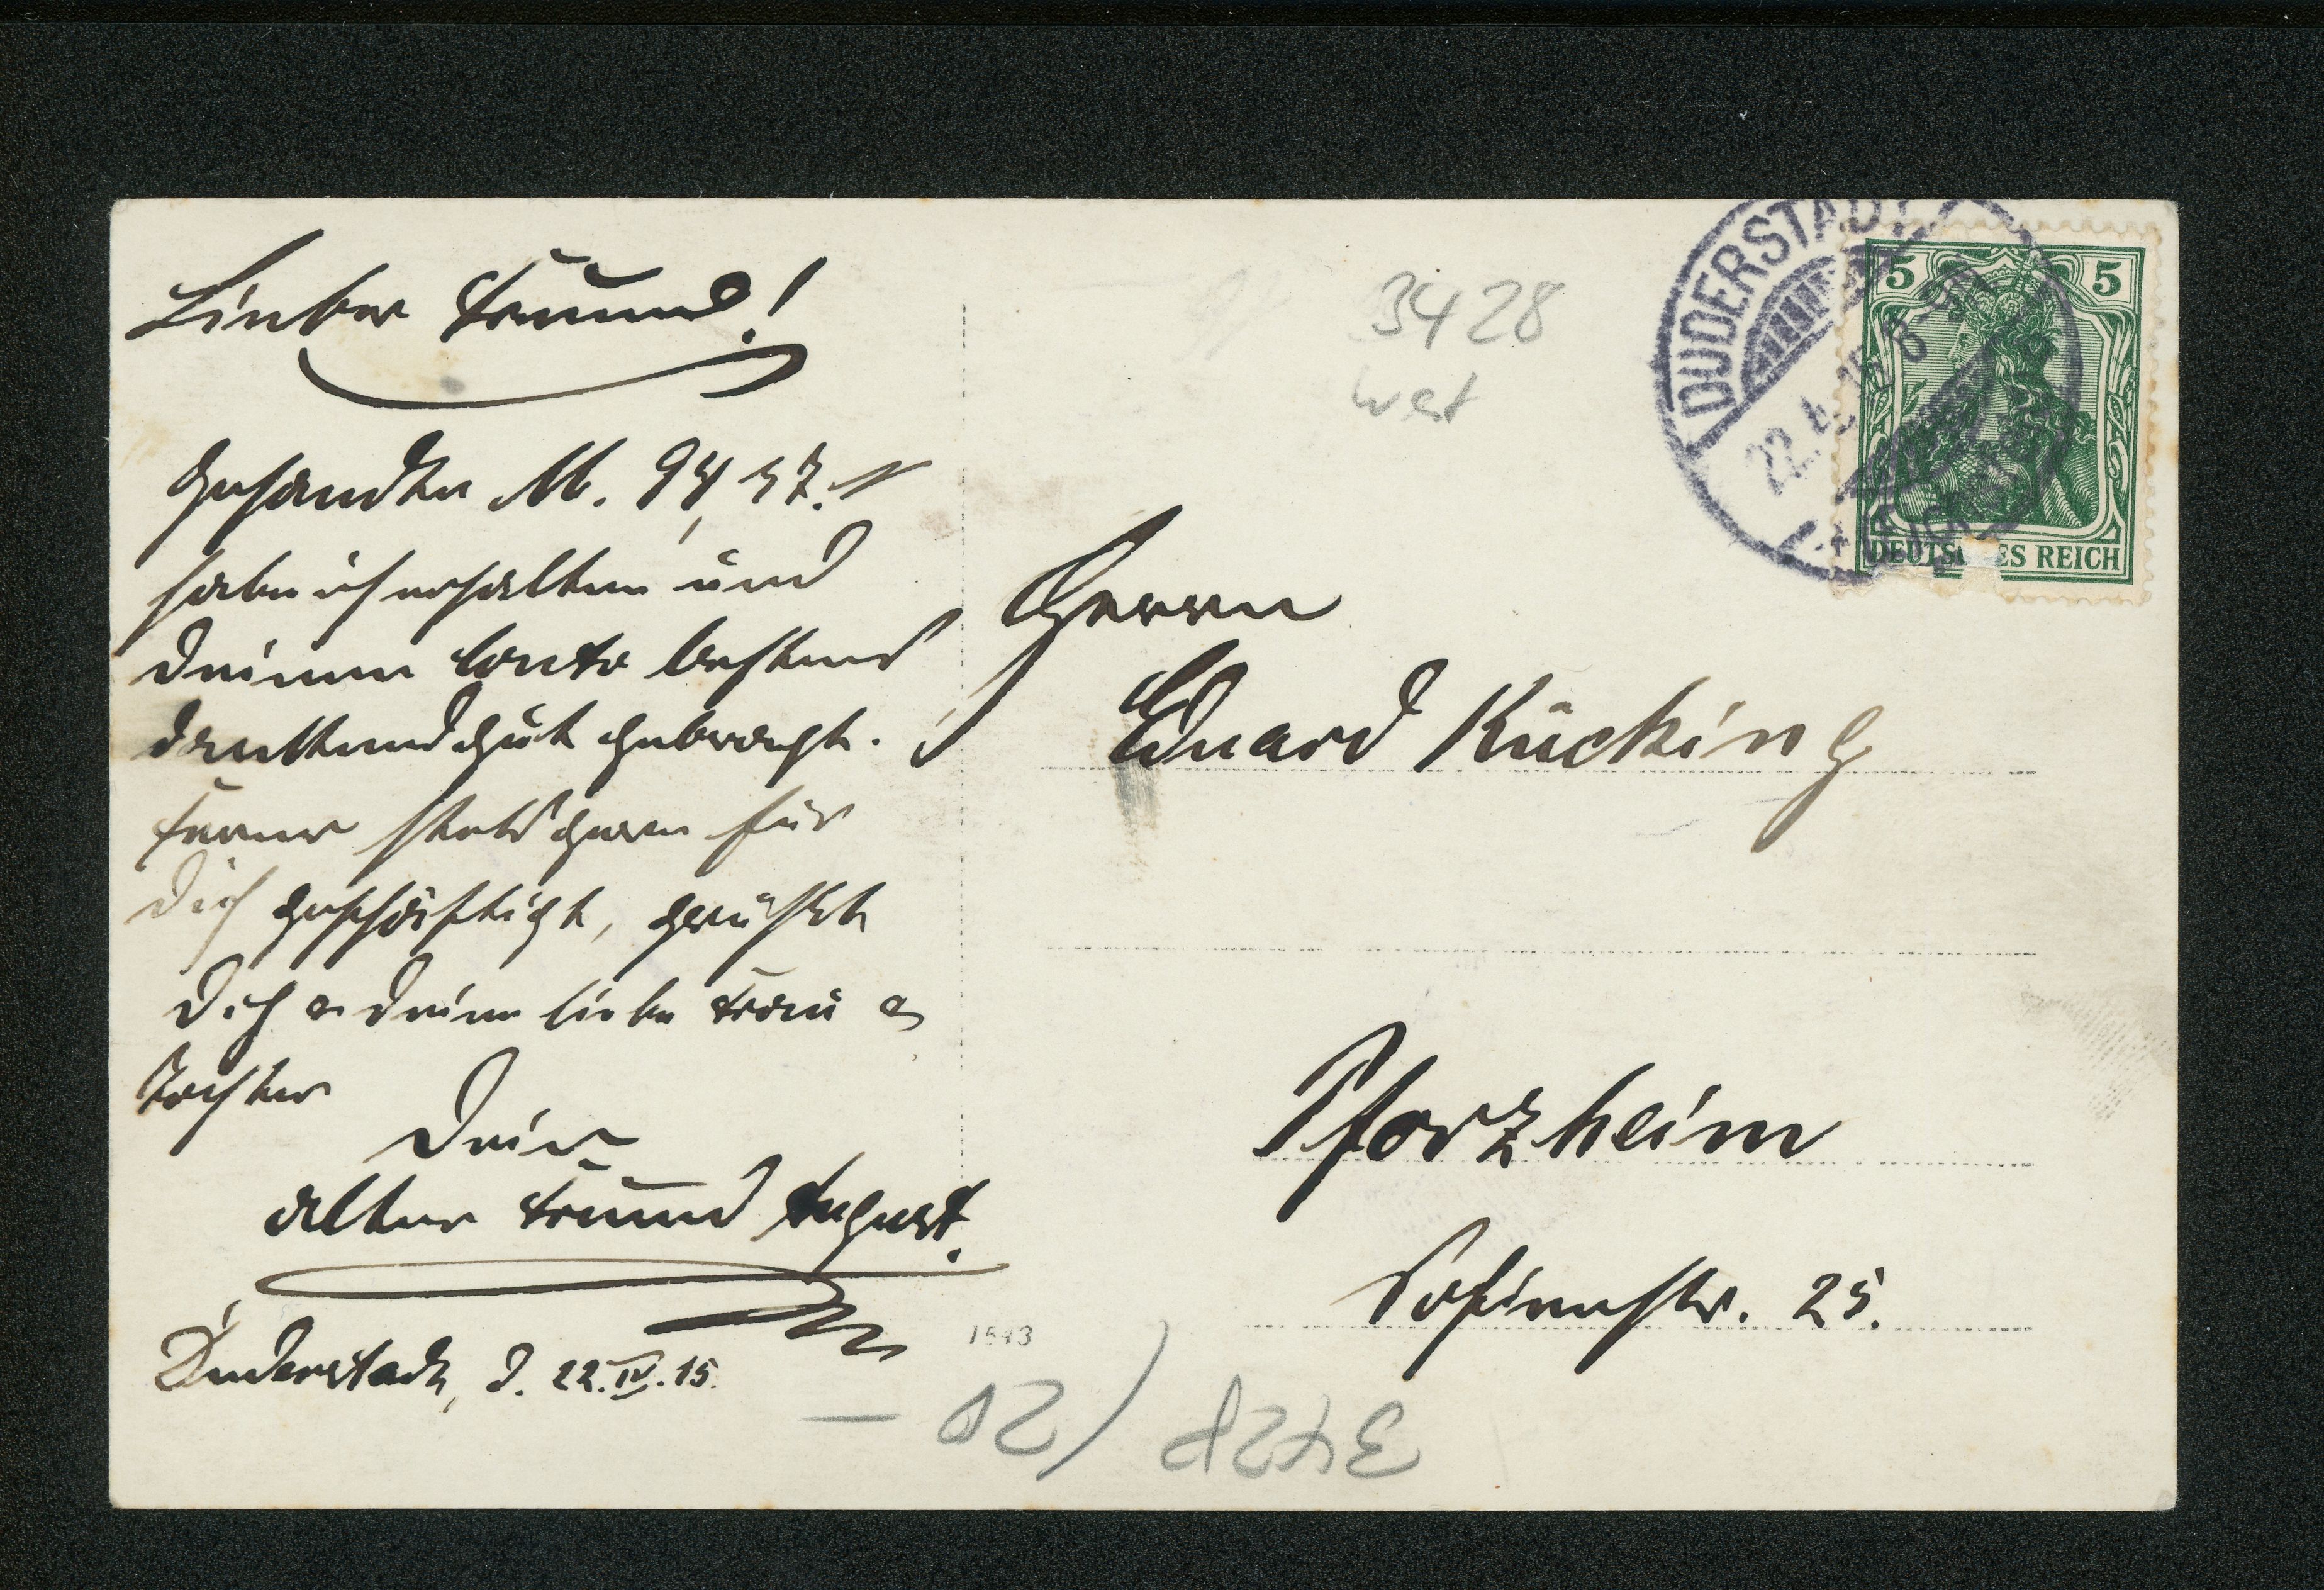 Lieber Freund!
Gesandte M. 94,57.
habe ich erhalten und
Deinem Conto bestens
dankend gut gebracht.
Ferner stets gern für
Dich geschäftigt, grüßt
Dich u. Deine liebe Frau u.
Tochter
Dein
alter Freund August.
Duderstadt, d. 22.IV.15.
1543
3428
West
DUDERSTADT
22.4.15 6
5 5
DEUTSCHES REICH
Herrn
Eduard Kücking
Pforzheim
Sofienstr. 25.
3428/20 —